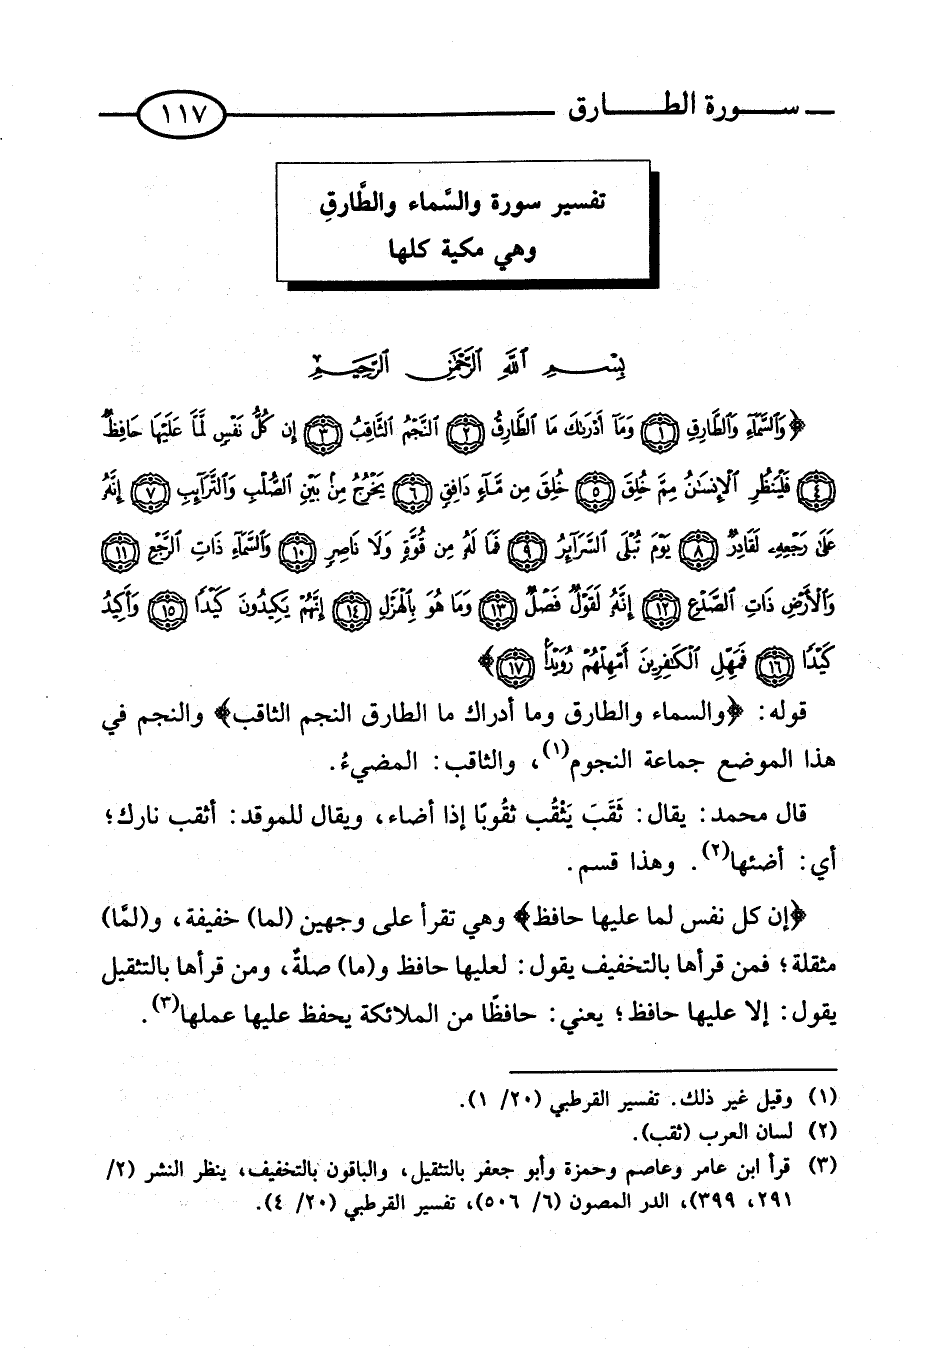 سورة الطارق ١١٧
تفسير سورة والسَّماء والطَّارقِ
وهي مكية كلها
بِسْمِ ٱللَّهِ ٱلرَّحْمَٰنِ ٱلرَّحِيمِ
﴿وَٱلسَّمَآءِ وَٱلطَّارِقِ ١ وَمَآ أَدْرَىٰكَ مَا ٱلطَّارِقُ ٢ ٱلنَّجْمُ ٱلثَّاقِبُ ٣ إِن كُلُّ نَفْسٍ لَّمَّا عَلَيْهَا حَافِظٌ
٤ فَلْيَنظُرِ ٱلْإِنسَٰنُ مِمَّ خُلِقَ ٥ خُلِقَ مِن مَّآءٍ دَافِقٍ ٦ يَخْرُجُ مِنۢ بَيْنِ ٱلصُّلْبِ وَٱلتَّرَآئِبِ ٧ إِنَّهُۥ
عَلَىٰ رَجْعِهِۦ لَقَادِرٌ ٨ يَوْمَ تُبْلَى ٱلسَّرَآئِرُ ٩ فَمَا لَهُۥ مِن قُوَّةٍ وَلَا نَاصِرٍ ١٠ وَٱلسَّمَآءِ ذَاتِ ٱلرَّجْعِ ١١
وَٱلْأَرْضِ ذَاتِ ٱلصَّدْعِ ١٢ إِنَّهُۥ لَقَوْلٌ فَصْلٌ ١٣ وَمَا هُوَ بِٱلْهَزْلِ ١٤ إِنَّهُمْ يَكِيدُونَ كَيْدًا ١٥ وَأَكِيدُ
كَيْدًا ١٦ فَمَهِّلِ ٱلْكَٰفِرِينَ أَمْهِلْهُمْ رُوَيْدًۢا ١٧﴾
قوله: ﴿والسماء والطارق وما أدراك ما الطارق النجم الثاقب﴾ والنجم في
هذا الموضع جماعة النجوم(١)، والثاقب: المضيءُ.
قال محمد: يقال: ثَقَبَ يَثْقُب ثقُوبًا إذا أضاء، ويقال للموقد: أثقب نارك؛
أي: أضئها(٢). وهذا قسم.
﴿إن كل نفس لما عليها حافظ﴾ وهي تقرأ على وجهين (لما) خفيفة، و(لمَّا)
مثقلة؛ فمن قرأها بالتخفيف يقول: لعليها حافظ و(ما) صلةٌ، ومن قرأها بالتثقيل
يقول: إلا عليها حافظ؛ يعني: حافظًا من الملائكة يحفظ عليها عملها(٣).
(١) وقيل غير ذلك. تفسير القرطبي (٢٠/ ١).
(٢) لسان العرب (ثقب).
(٣) قرأ ابن عامر وعاصم وحمزة وأبو جعفر بالتثقيل، والباقون بالتخفيف، ينظر النشر (٢/
٢٩١، ٣٩٩)، الدر المصون (٦/ ٥٠٦)، تفسير القرطبي (٢٠/ ٤).